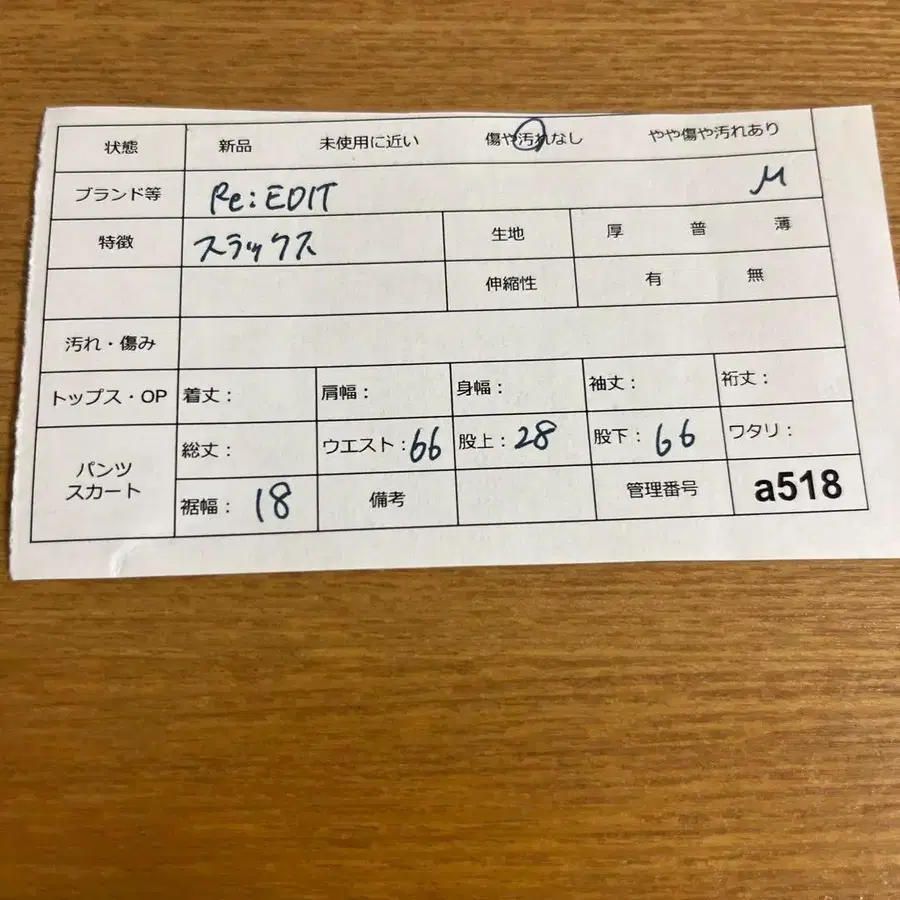 状態 新品 未使用に近い 傷や汚れなし やや傷や汚れあり
ブランド等 Re:EDIT M
特徴 スラックス 生地 厚 普 薄
伸縮性 有 無
汚れ・傷み
トップス・OP 着丈: 肩幅: 身幅: 袖丈: 裄丈:
パンツ スカート 総丈: ウエスト:66 股上:28 股下:66 ワタリ:
裾幅: 18 備考 管理番号 a518